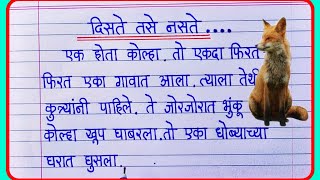 दिसते तसे नसते ....
एक होता कोल्हा. तो एकदा फिरत
फिरत एका गावात आला. त्याला तेथील
कुत्र्यांनी पाहिले. ते जोरजोरात भुंकू
कोल्हा खूप घाबरला. तो एका धोब्याच्या
घरात घुसला.